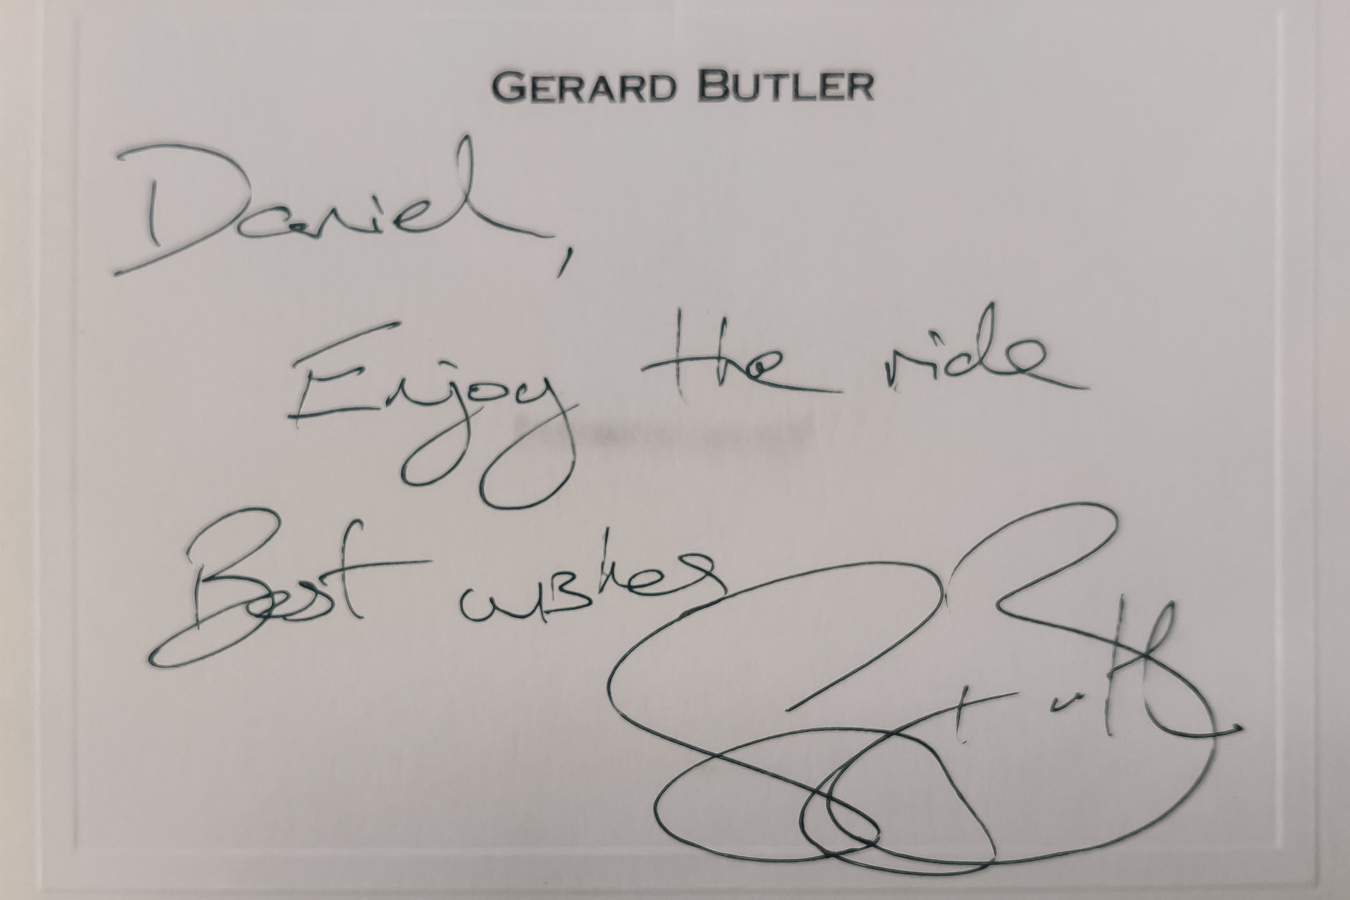 GERARD BUTLER
Daniel,
Enjoy the ride
Best wishes